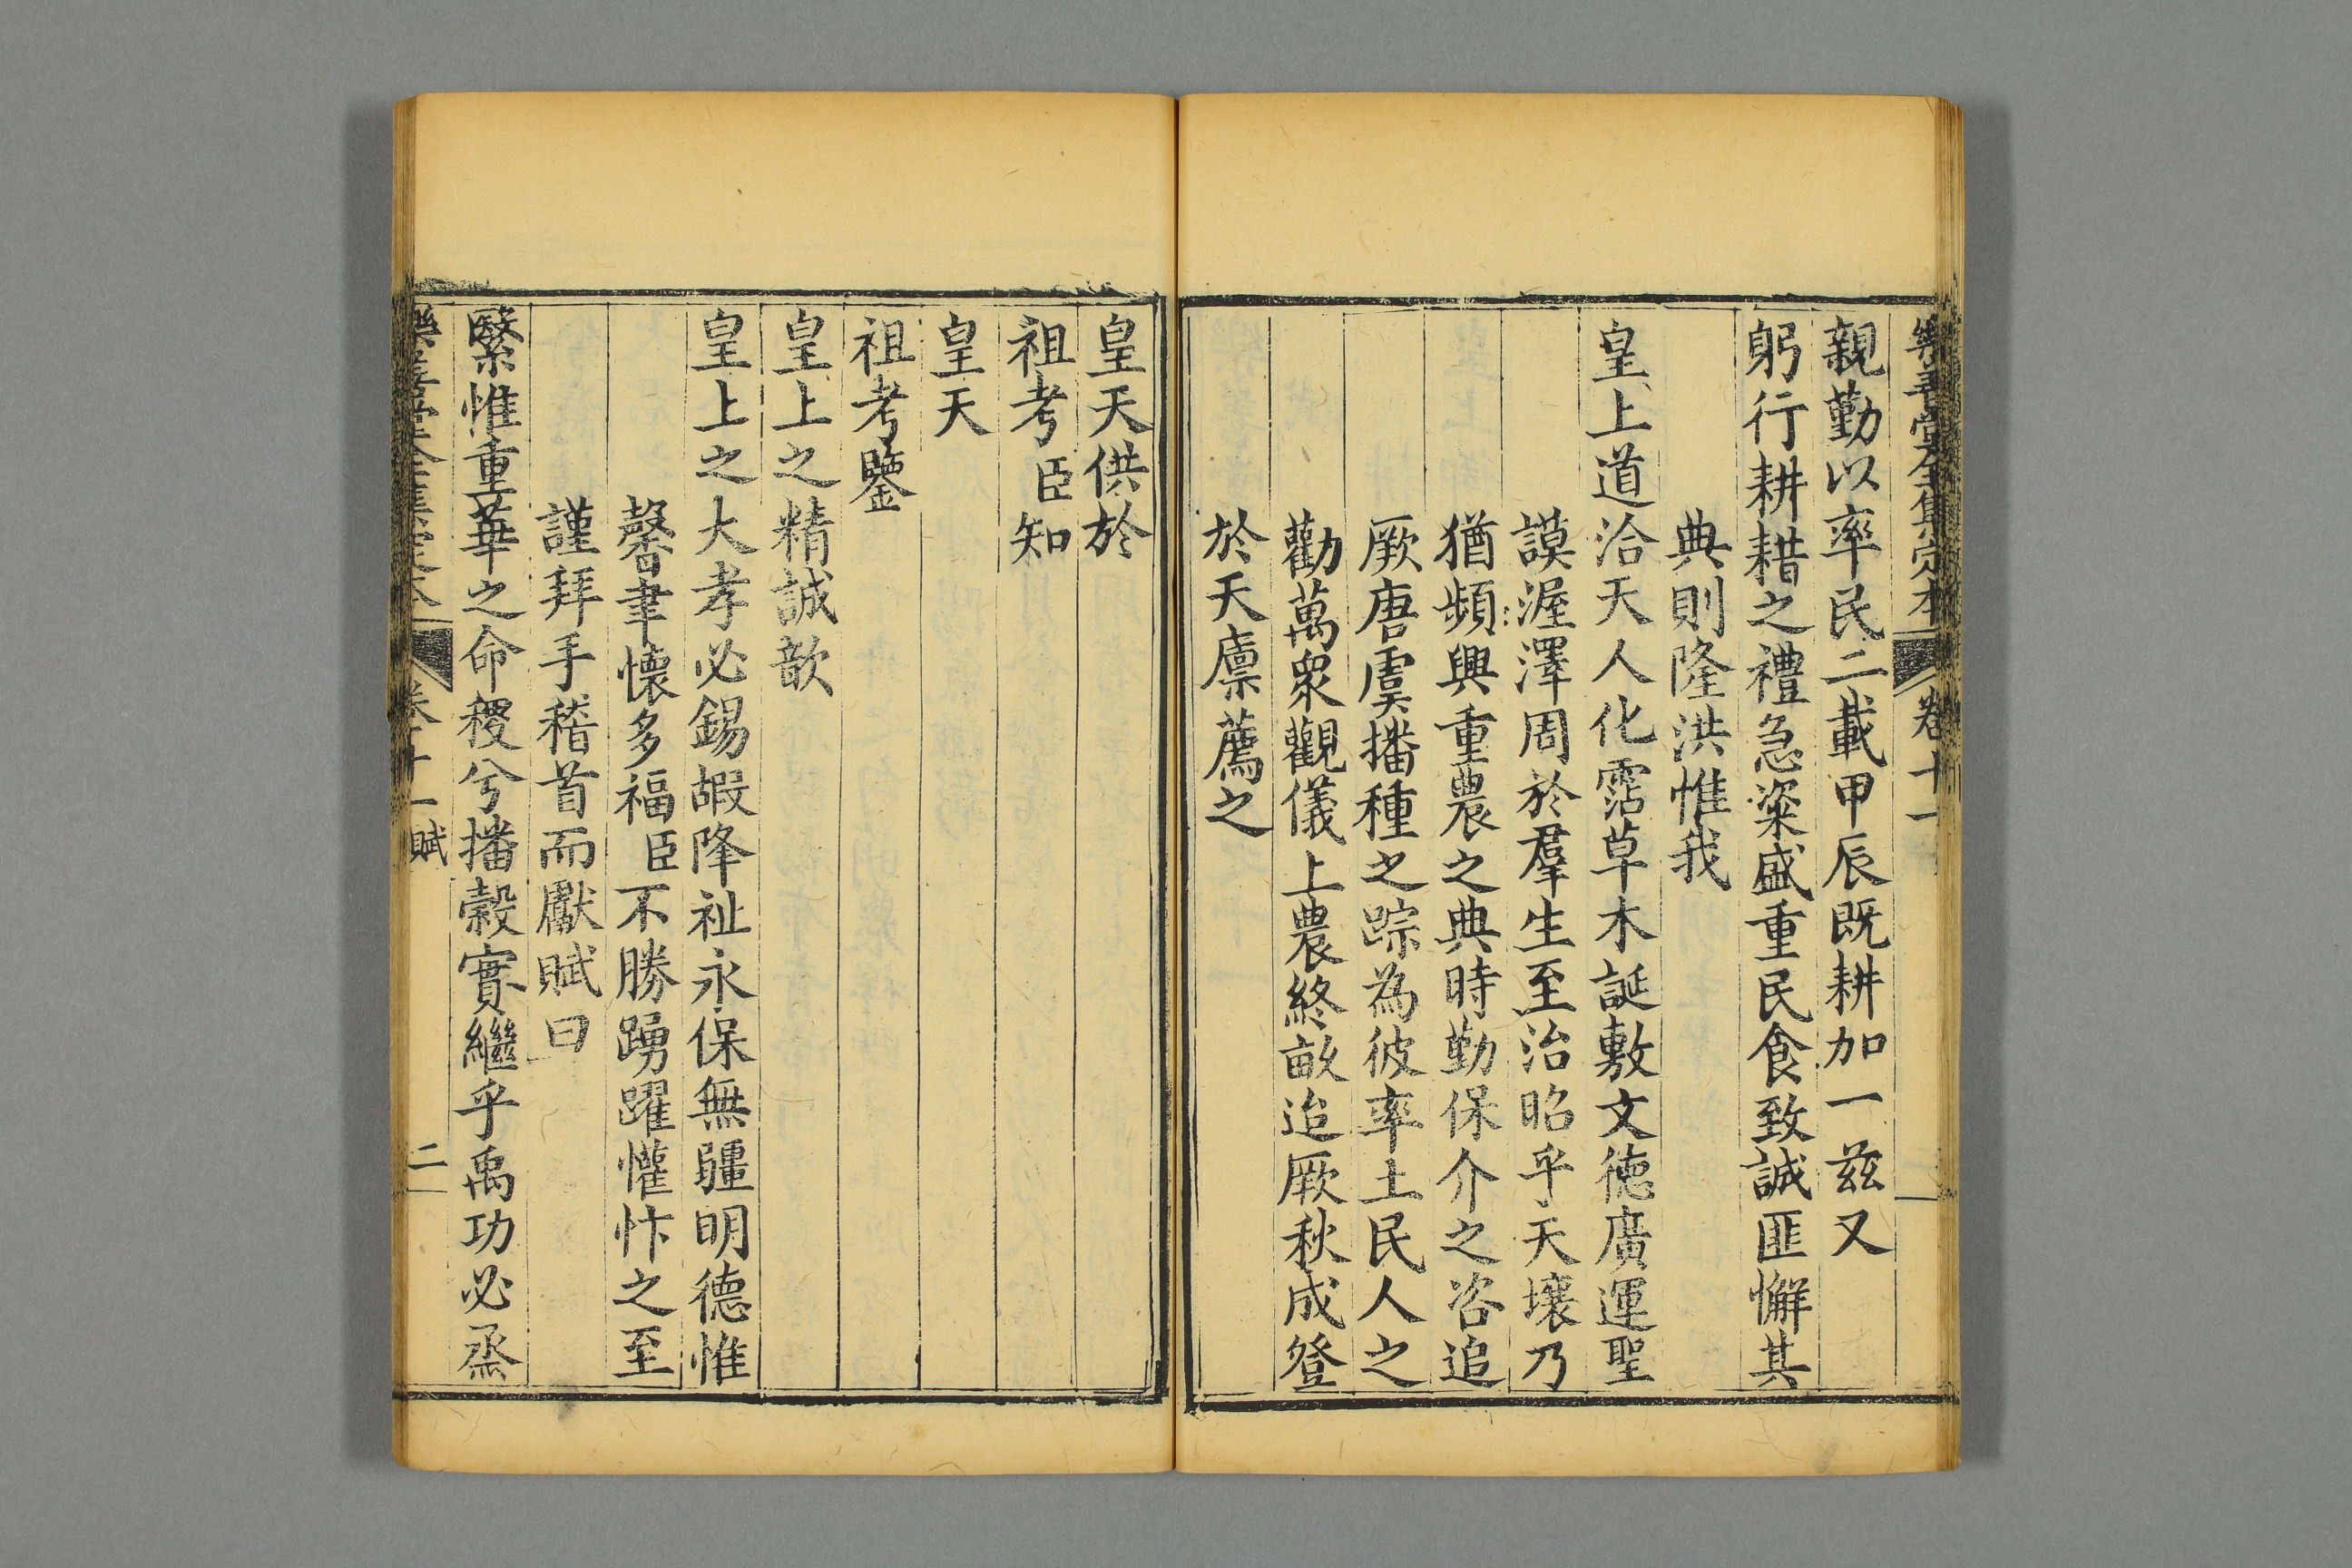 樂善堂全集定本 卷十一
親勤以率民二載甲辰既耕加一茲又
躬行耕耤之禮急粢盛重民食致誠匪懈其
典則隆洪惟我
皇上道洽天人化霑草木誕敷文德廣運聖
謨渥澤周於羣生至治昭乎天壤乃
猶頻興重農之典時勤保介之咨追
厥唐虞播種之踪為彼率土民人之
勸萬衆觀儀上農終畝迨厥秋成登
於天廪薦之
皇天供於
祖考臣知
皇天
祖考鑒
皇上之精誠歆
皇上之大孝必錫嘏降祉永保無疆明德惟
馨聿懷多福臣不勝踴躍懽忭之至
謹拜手稽首而獻賦曰
繄惟重華之命稷兮播穀實繼乎禹功必烝
樂善堂全集定本 卷十一賦 二